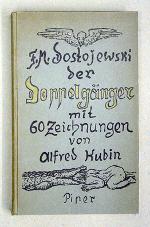 F. M. Dostojewski
der
Doppelgänger
mit
60 Zeichnungen
von
Alfred Kubin
Piper